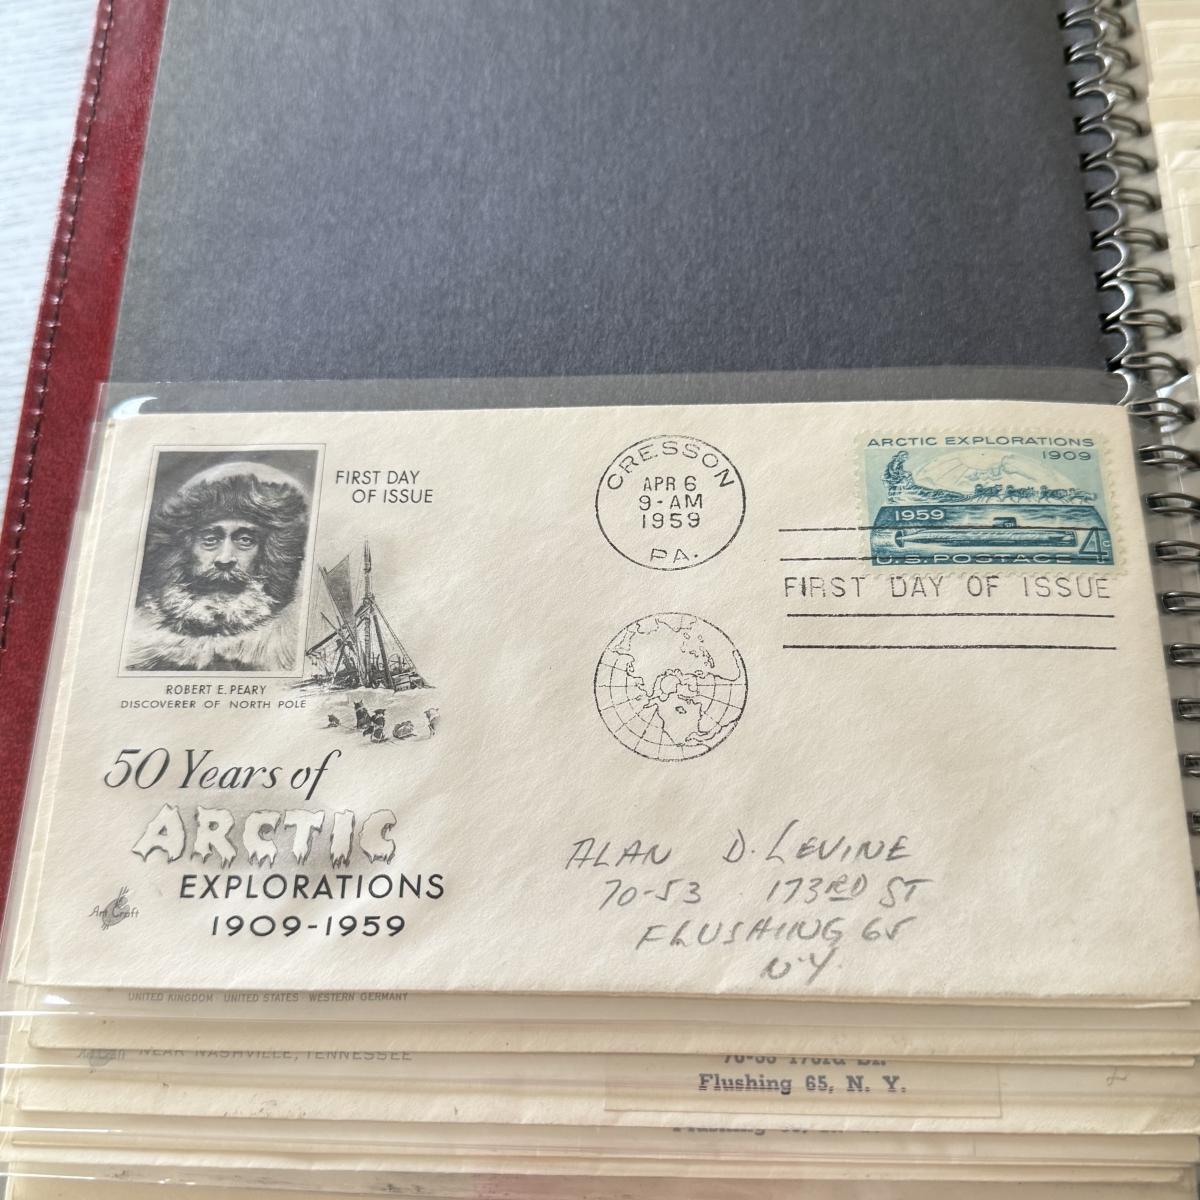 FIRST DAY
OF ISSUE
ROBERT E. PEARY
DISCOVERER OF NORTH POLE
50 Years of
ARCTIC
EXPLORATIONS
1909-1959
Art Craft
CRESSON
APR 6
9-AM
1959
PA.
ARCTIC EXPLORATIONS
1909
1959
4c
U.S. POSTAGE
FIRST DAY OF ISSUE
ALAN D. LEVINE
70-53 173RD ST
FLUSHING 65
N.Y.
UNITED KINGDOM · UNITED STATES · WESTERN GERMANY
Art Craft
NEAR NASHVILLE, TENNESSEE
Flushing 65, N. Y.